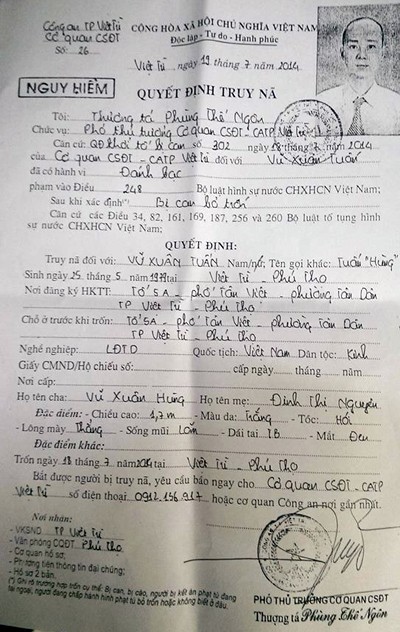 Công an TP Việt Trì
Cơ quan CSĐT
Số: 26
CỘNG HÒA XÃ HỘI CHỦ NGHĨA VIỆT NAM
Độc lập - Tự do - Hạnh phúc
Việt Trì, ngày 19 tháng 7 năm 2014
NGUY HIỂM
QUYẾT ĐỊNH TRUY NÃ
Tôi: Thượng tá Phùng Thế Ngôn
Chức vụ: Phó thủ trưởng Cơ quan CSĐT - CATP Việt Trì
Căn cứ QĐ khởi tố bị can số 302 ngày 18 tháng 7 năm 2014
của Cơ quan CSĐT - CATP Việt Trì đối với Vũ Xuân Tuấn
đã có hành vi Đánh bạc
phạm vào Điều 248 Bộ luật hình sự nước CHXHCN Việt Nam;
Sau khi xác định Bị can bỏ trốn
Căn cứ các Điều 34, 82, 161, 169, 187, 256 và 260 Bộ luật tố tụng hình
sự nước CHXHCN Việt Nam;
QUYẾT ĐỊNH:
Truy nã đối với: VŨ XUÂN TUẤN Nam/nữ; Tên gọi khác: Tuấn "Hưng"
Sinh ngày 25 tháng 5 năm tại Việt Trì - Phú Thọ
Nơi đăng ký HKTT: Tổ 5A - phố Tân Việt - phường Tân Dân
TP Việt Trì - Phú Thọ
Chỗ ở trước khi trốn: Tổ 5A - phố Tân Việt - phường Tân Dân
TP Việt Trì - Phú Thọ
Nghề nghiệp: LĐTD Quốc tịch: Việt Nam Dân tộc: Kinh
Giấy CMND/Hộ chiếu số: cấp ngày tháng năm
Nơi cấp:
Họ tên cha: Vũ Xuân Hưng Họ tên mẹ: Đinh Thị Nguyên
Đặc điểm: - Chiều cao: 1,7 m - Màu da: Trắng - Tóc: Hói
- Lông mày Thẳng - Sống mũi - Dái tai TB - Mắt Đen
Đặc điểm khác:
Trốn ngày 18 tháng 7 năm 2014 tại Việt Trì - Phú Thọ
Bắt được người bị truy nã, yêu cầu báo ngay cho Cơ quan CSĐT - CATP
Việt Trì số điện thoại 0912.156.917 hoặc cơ quan Công an nơi gần nhất.
Nơi nhận:
- VKSND TP Việt Trì
- Văn phòng CQĐT Phú Thọ
- Cơ quan hồ sơ;
- Phương tiện thông tin đại chúng;
- Hồ sơ 2 bản.
(*) Ghi rõ trường hợp cụ thể: Bị can, bị cáo, người bị kết án phạt tù đang
tại ngoại, người đang chấp hành hình phạt tù bỏ trốn hoặc không biết ở đâu.
PHÓ THỦ TRƯỞNG CƠ QUAN CSĐT
Thượng tá Phùng Thế Ngôn